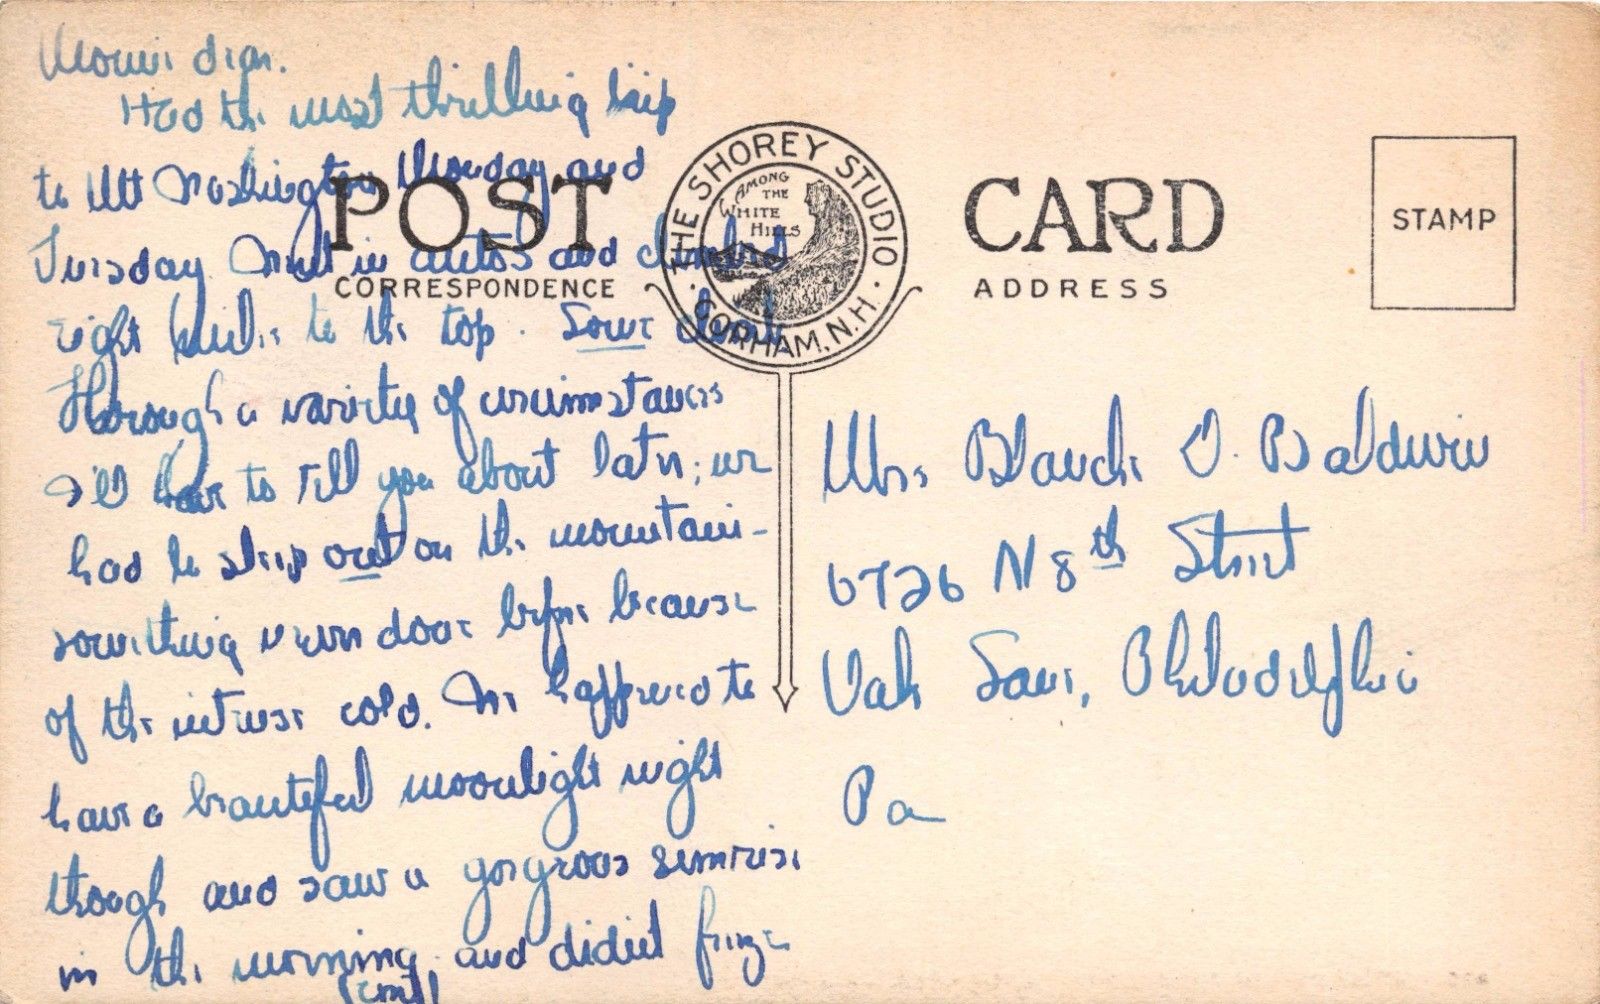 Momie dear.
Had the most thrilling trip
to Mt Washington Monday and
Tuesday. Went in autos and climbed
eight miles to the top. Some climb
Through a variety of circumstances
I'll have to tell you about later; we
had to sleep out on the mountain-
something never done before because
of the intense cold. We happened to
have a beautiful moonlight night
though and saw a gorgeous sunrise
in the morning. and didn't freeze
(cont)
POST CARD
CORRESPONDENCE
ADDRESS
THE SHOREY STUDIO
AMONG
THE
WHITE
HILLS
GORHAM, N.H.
STAMP
Mrs Blanche O. Baldwin
6726 N 8th Street
Oak Lane, Philadelphia
Pa